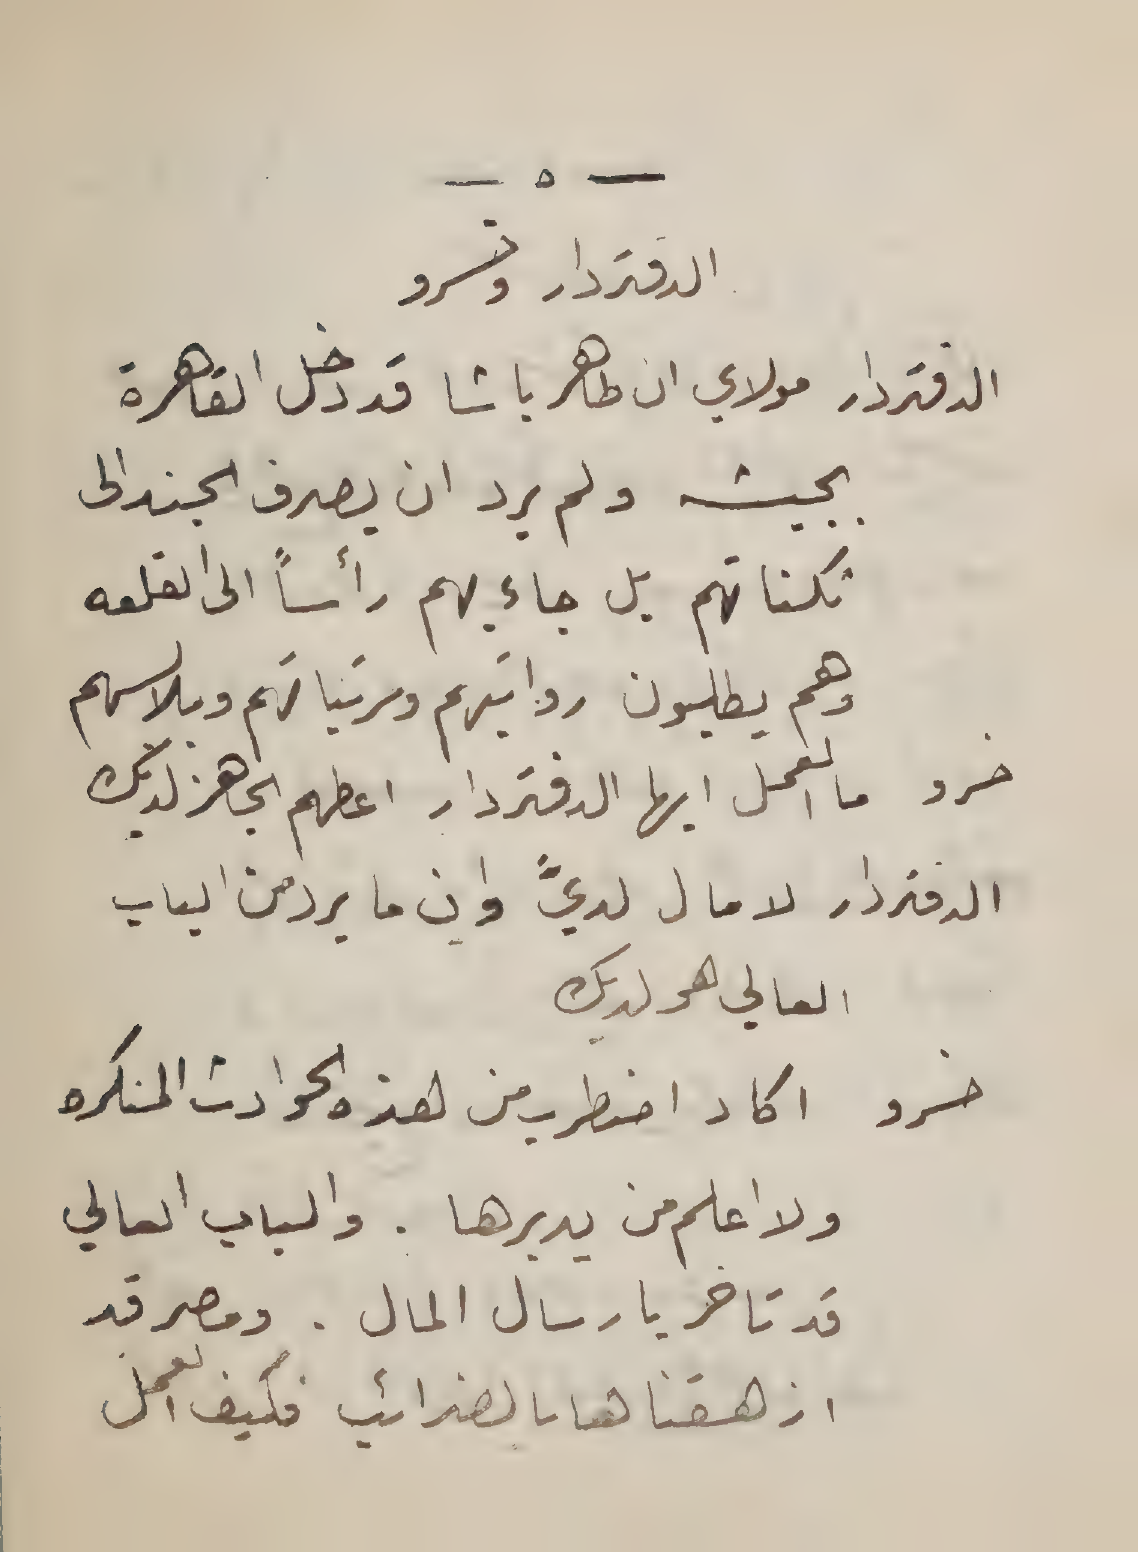 — ٥ —
الدفتردار وخسرو
الدفتردار مولاي ان طاهر باشا قد دخل القاهرة
بجيشه ولم يرد ان يصرف الجند الى
ثكناتهم بل جاء بهم رأساً الى القلعه
وهم يطلبون رواتبهم ومرتباتهم وملابسهم
خسرو ما العمل ايها الدفتردار اعطهم الجاهز لديك
الدفتردار لا مال لديَّ وان ما يرد من الباب
العالي هو لديك
خسرو اكاد اضطرب من هذه الحوادث المنكره
ولا اعلم من يدبرها . والباب العالي
قد تاخر بارسال المال . ومصر قد
ازهقناها بالضرائب فكيف العمل